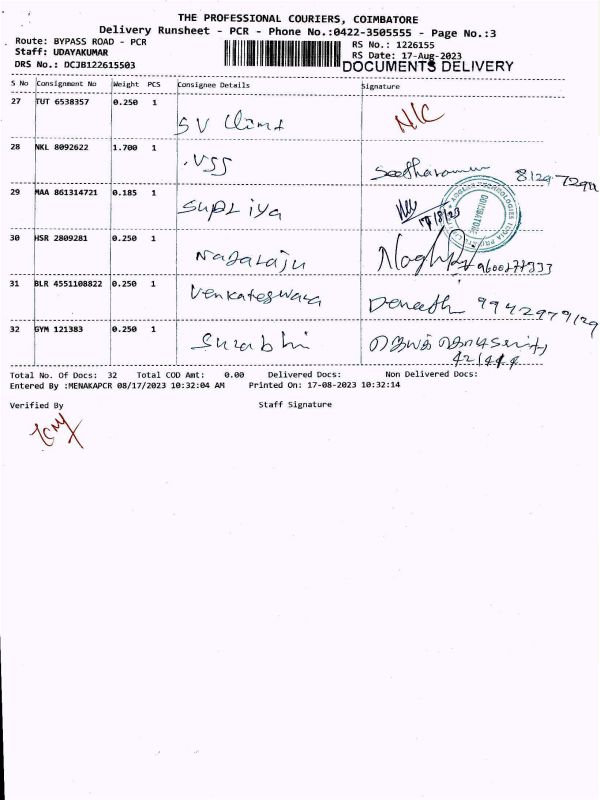 THE PROFESSIONAL COURIERS, COIMBATORE
Delivery Runsheet - PCR - Phone No.:0422-3505555 - Page No.:3
Route: BYPASS ROAD - PCR
RS No.: 1226155
Staff: UDAYAKUMAR
RS Date: 17-Aug-2023
DRS No.: DCJB122615503
DOCUMENTS DELIVERY
S No Consignment No Weight PCS Consignee Details Signature
27 TUT 6538357 0.250 1
SV
28 NKL 8092622 1.700 1
VSS
29 MAA 861314721 0.185 1
Supriya 17/8/23
30 HSR 2809281 0.250 1
Nagaraju
31 BLR 4551108822 0.250 1
Venkateswara 9942979129
32 GYM 121383 0.250 1
Surabhi
Total No. Of Docs: 32 Total COD Amt: 0.00 Delivered Docs: Non Delivered Docs:
Entered By :MENAKAPCR 08/17/2023 10:32:04 AM Printed On: 17-08-2023 10:32:14
Verified By Staff Signature